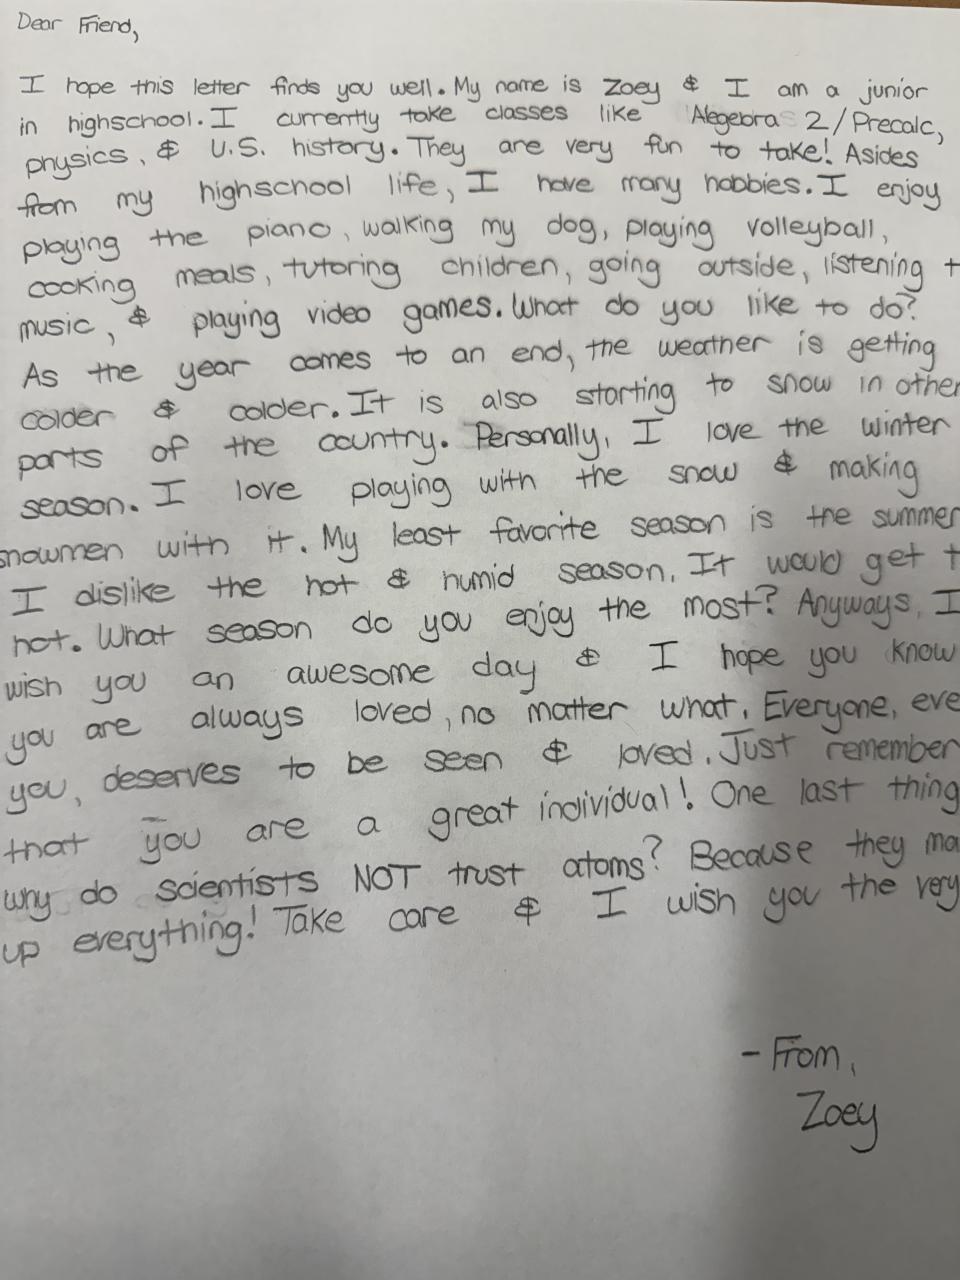 Dear Friend,
I hope this letter finds you well. My name is Zoey & I am a junior
in highschool. I currently take classes like Alegebra 2/Precalc,
physics, & U.S. history. They are very fun to take! Asides
from my highschool life, I have many hobbies. I enjoy
playing the piano, walking my dog, playing volleyball,
cooking meals, tutoring children, going outside, listening t
music, & playing video games. What do you like to do?
As the year comes to an end, the weather is getting
colder & colder. It is also starting to snow in other
parts of the country. Personally, I love the winter
season. I love playing with the snow & making
snowmen with it. My least favorite season is the summer
I dislike the hot & humid season. It would get t
hot. What season do you enjoy the most? Anyways, I
wish you an awesome day & I hope you know
you are always loved, no matter what. Everyone, eve
you, deserves to be seen & loved. Just remember
that you are a great individual! One last thing
why do scientists NOT trust atoms? Because they ma
up everything! Take care & I wish you the very
- From,
Zoey